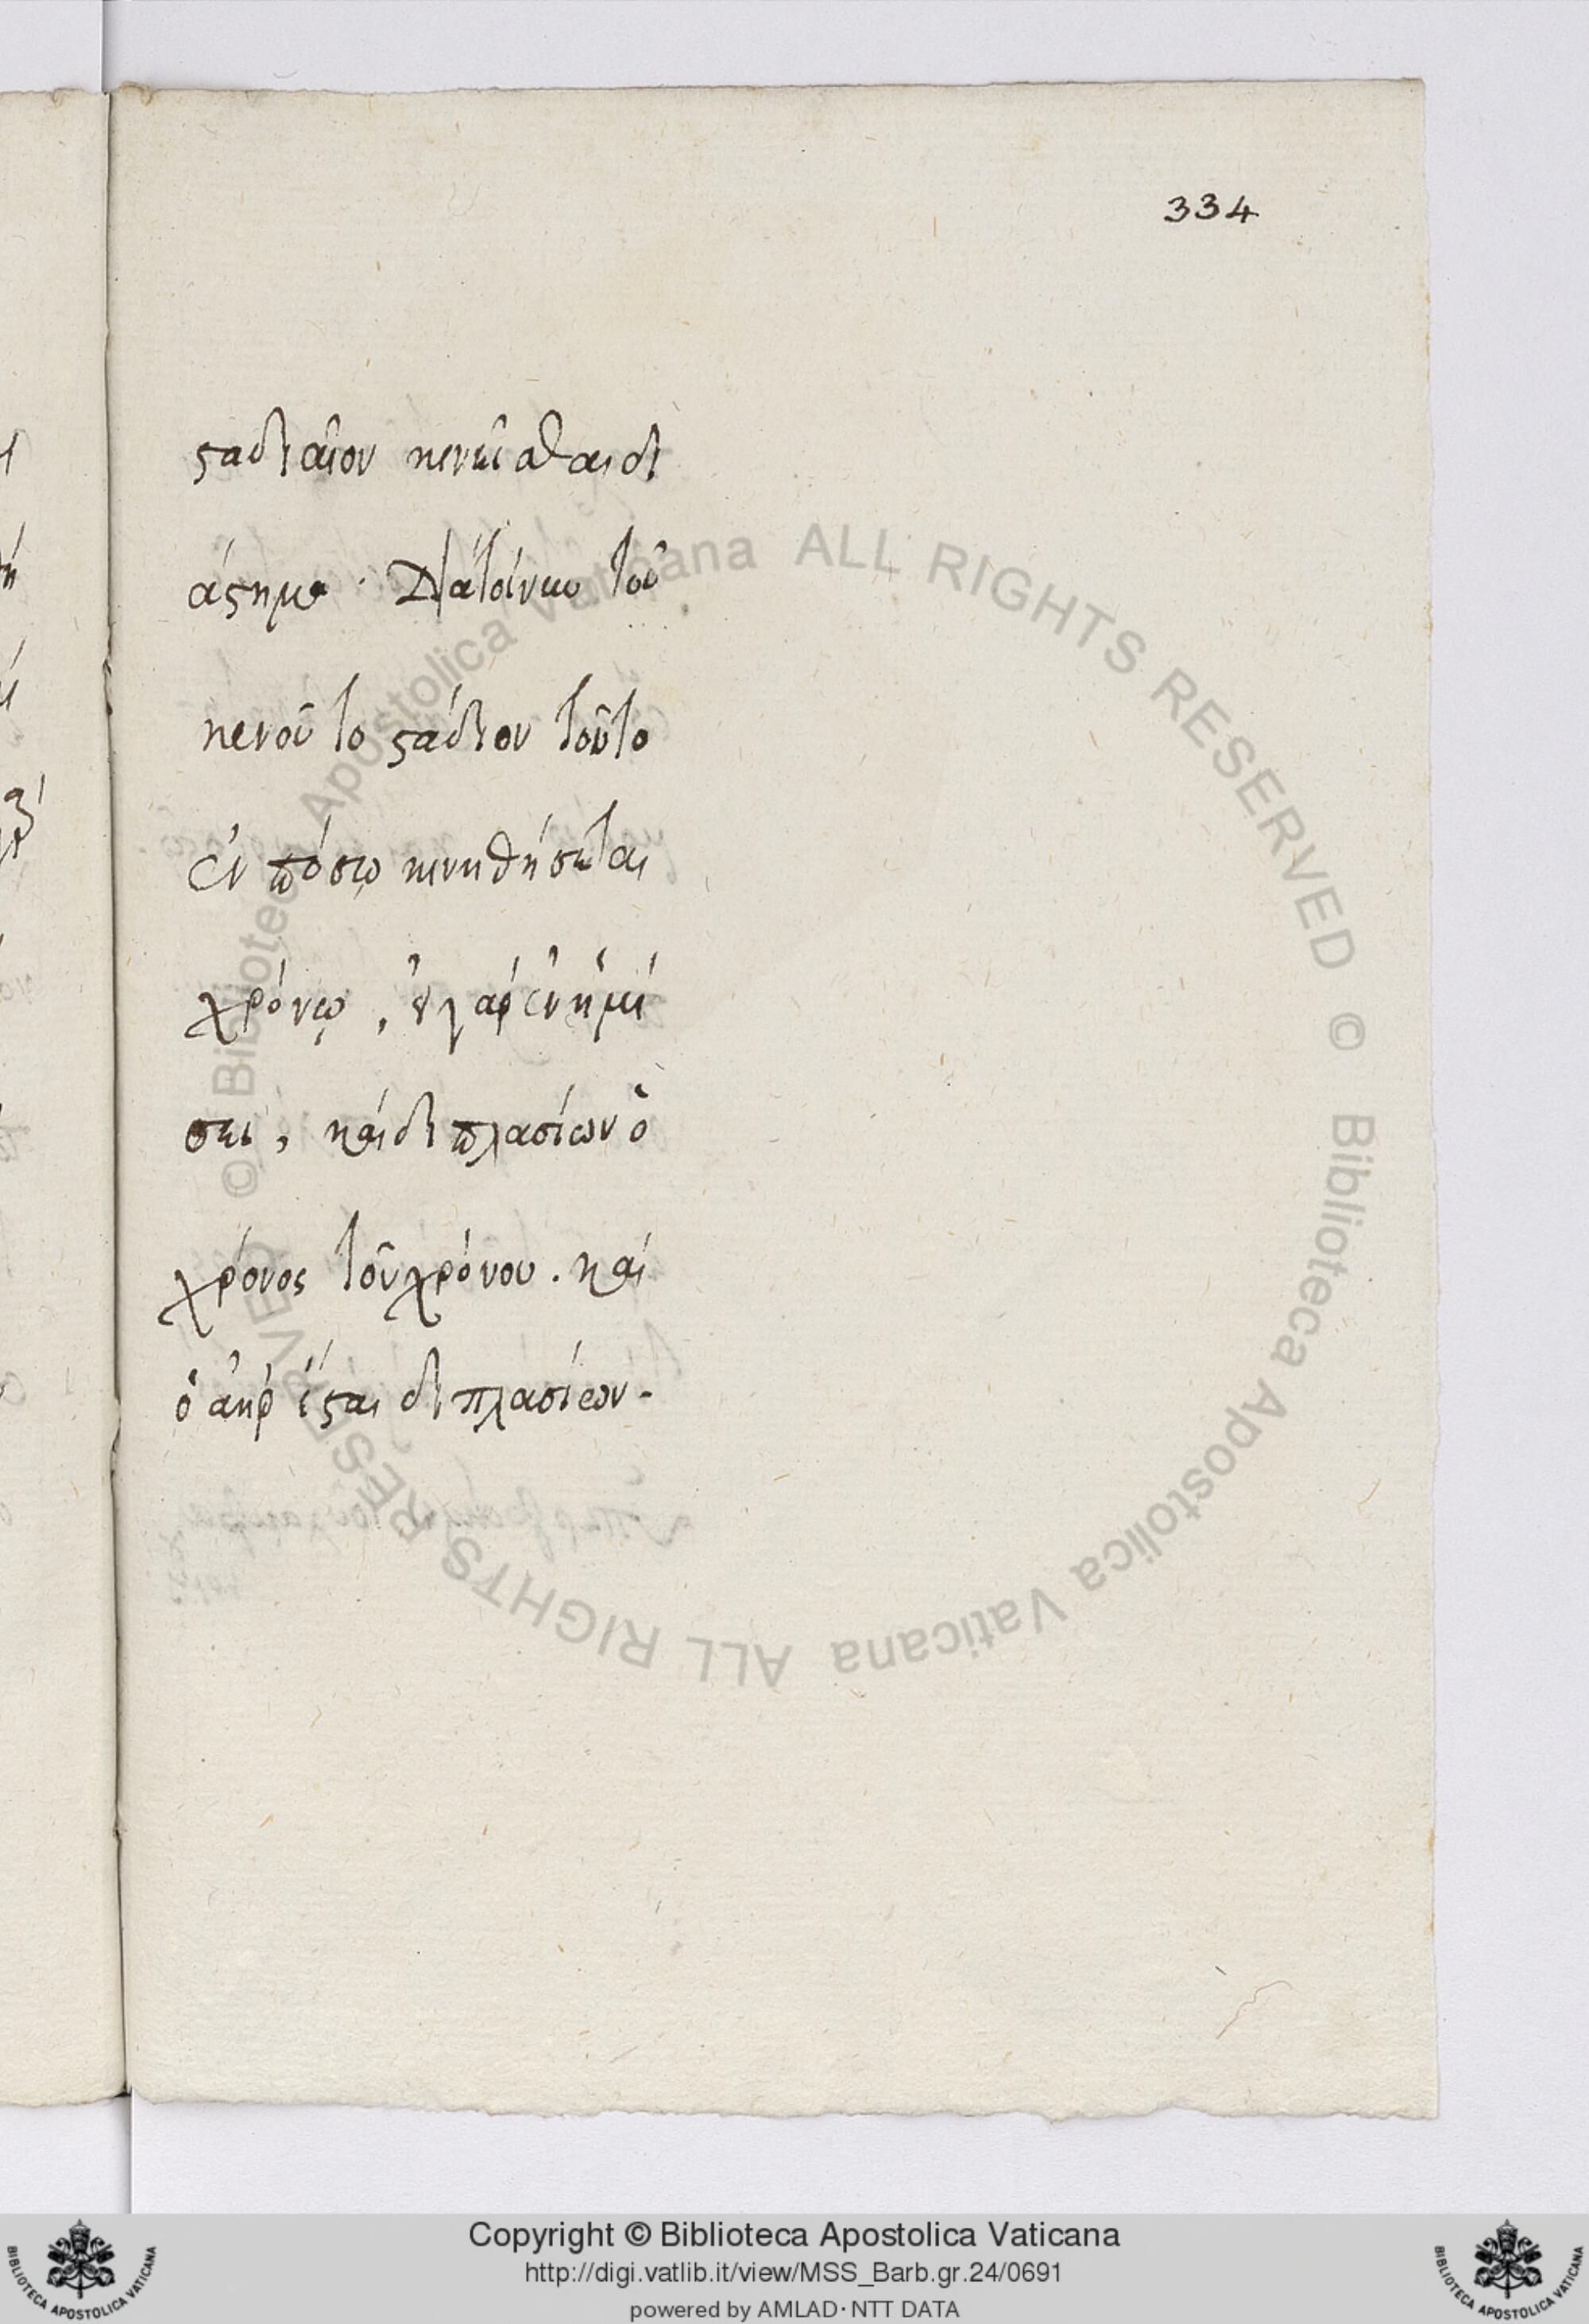 334
ςαδιαῖον κενεῖσθαι δι
άςημα. Διὰ τοίνυν τοῦ
κενοῦ το ςάδιον τοῦτο
ἐν πόσῳ κινηθήσεται
χρόνῳ, ἐν γὰρ ἐν ἡμί
σει, καὶ διπλασίων ὁ
χρόνος τοῦ χρόνου. καὶ
ὁ ἀὴρ ἔςαι διπλασίων.
© Biblioteca Apostolica Vaticana ALL RIGHTS RESERVED © Biblioteca Apostolica Vaticana ALL RIGHTS RESERVED
Copyright © Biblioteca Apostolica Vaticana
http://digi.vatlib.it/view/MSS_Barb.gr.24/0691
powered by AMLAD·NTT DATA
BIBLIOTECA APOSTOLICA VATICANA
BIBLIOTECA APOSTOLICA VATICANA